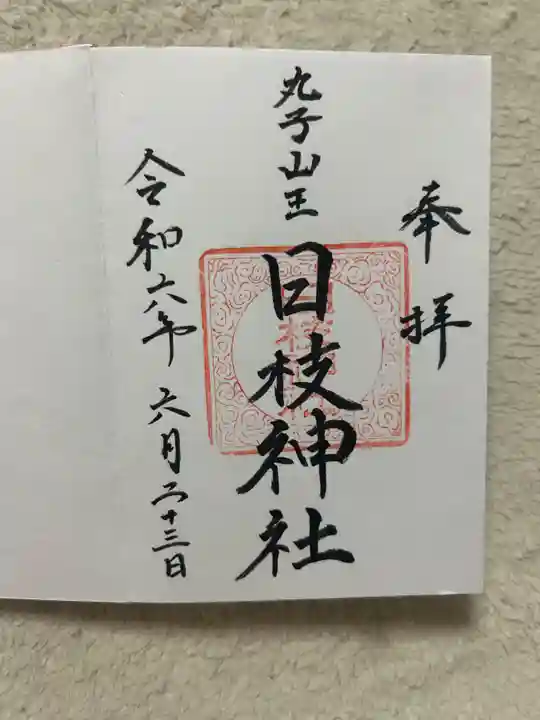 奉拝
丸子山王
日枝神社
令和六年六月二十三日